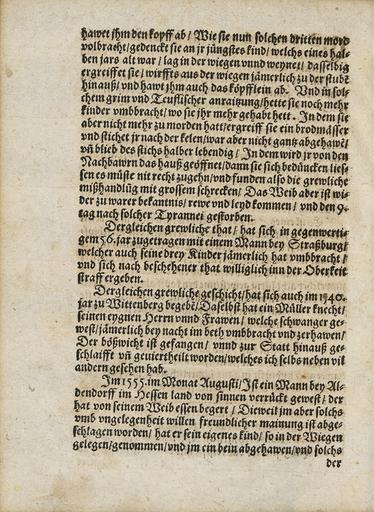 hawet jhm den kopff ab / Wie sie nun solchen dritten mord
volbracht / gedenckt sie an jr jüngstes kind / welchs eines hal-
ben jars alt war / lag in der wiegen vnnd weynet / dasselbig
ergreiffet sie / wirffts aus der wiegen jämerlich zu der stubẽ
hinauß / vnd hawt jhm auch das köpfflein ab. Vnd in sol-
chem grim vnd Teuflischer anraitzung / hette sie noch mehr
kinder vmbbracht / wo sie jhr mehr gehabt hett. In dem sie
aber nicht mehr zu morden hatt / ergreiff sie ein brodmässer
vnd stichet jr nach der kelen / war aber nicht gantz abgehawẽ /
vñ blieb des stichs halber lebendig / In dem wird jr von den
Nachbawrn das hauß geöffnet / dann sie sich bedüncken lies-
sen es müste nit recht zugehn / vnd funden also die grewliche
mißhandlũg mit grossem schrecken / Das Weib aber ist wi-
der zu warer bekantnis / rewe vnd leyd kommen / vnd den 9.
tag nach solcher Tyrannei gestorben.
Dergleichen grewliche that / hat sich in gegenwerti-
gem 56. jar zugetragen mit einem Mann bey Straßburg /
welcher auch seine drey Kinder jämerlich hat vmbbracht /
vnd sich nach beschehener that williglich inn der Oberkeit
straff ergeben.
Dergleichen grewliche geschicht / hat sich auch im 1540.
jar zu Wittenberg begebẽ / Daselbst hat ein Müller knecht /
seinen eygnen Herrn vnnd Frawen / welche schwanger ge-
west / jämerlich bey nacht im beth vmbbracht vnd zerhawen /
Der bößwicht ist gefangen / vnnd zur Statt hinauß ge-
schlaifft vñ geuiertheilt worden / welches ich selbs neben vil
andern gesehen hab.
Im 1555. im Monat Augusti / Ist ein Mann bey Al-
dendorff im Hessen land von sinnen verrückt gewest / der
hat von seinem Weib essen begert / Dieweil jm aber solchs
vmb vngelegenheit willen freundlicher mainung ist abge-
schlagen worden / hat er sein eigenes kind / so in der Wiegen
gelegen / genommen / vnd jm ein bein abgehawen / vnd solchs
der